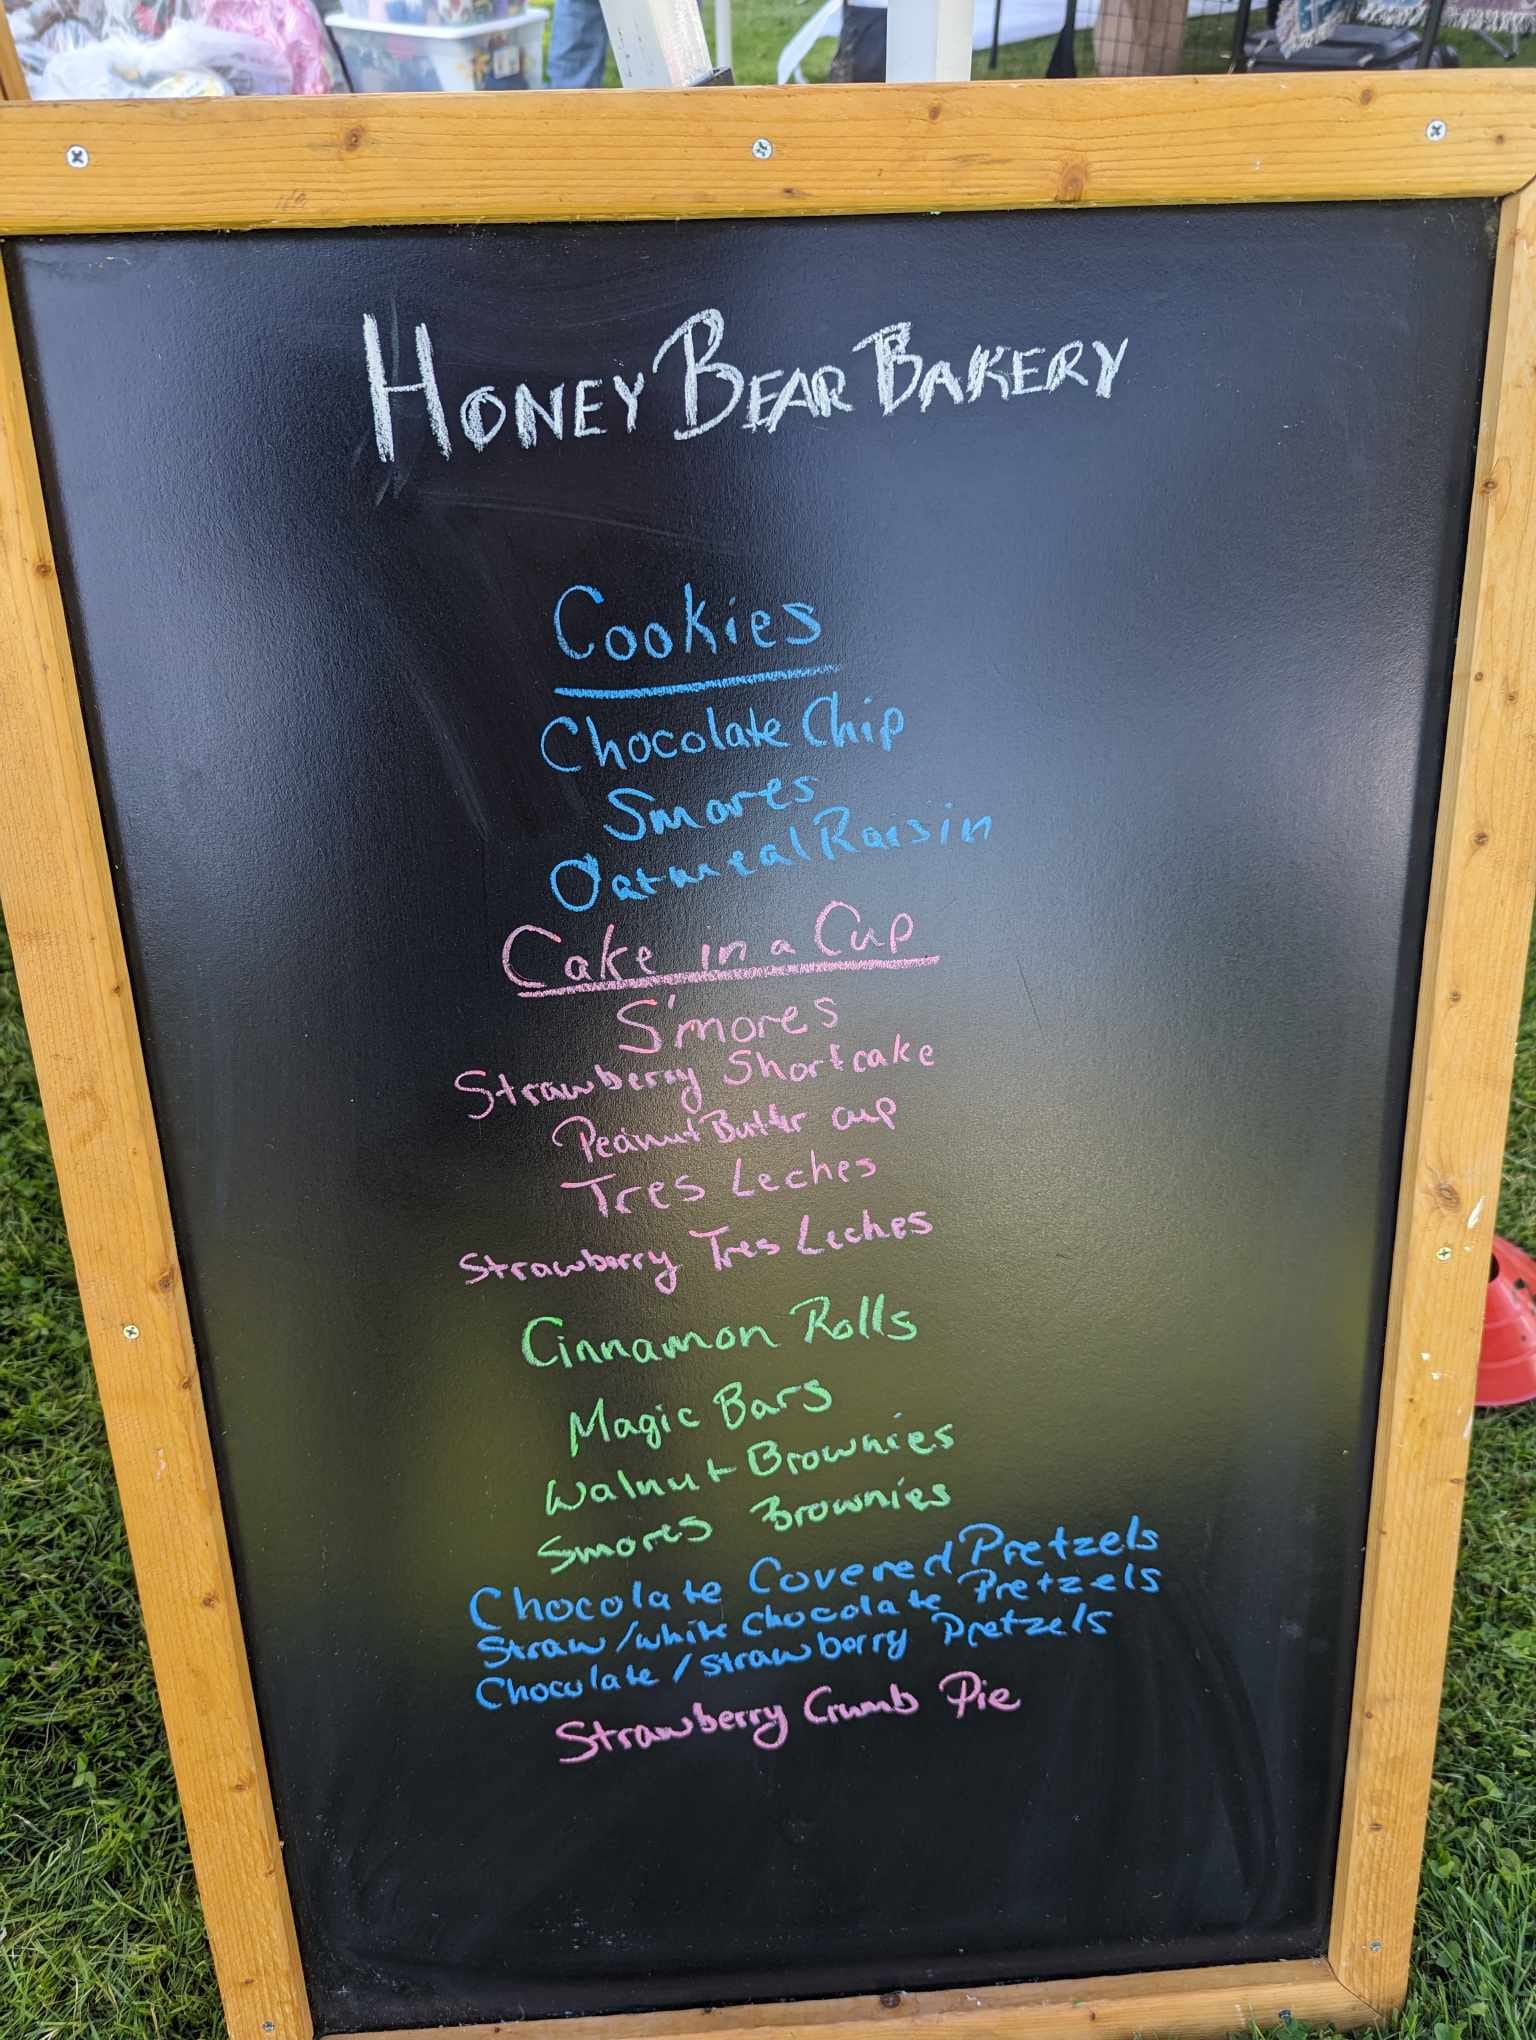 HONEY BEAR BAKERY
Cookies
Chocolate Chip
Smores
Oatmeal Raisin
Cake in a Cup
S'mores
Strawberry Shortcake
Peanut Butter cup
Tres Leches
Strawberry Tres Leches
Cinnamon Rolls
Magic Bars
Walnut Brownies
Smores Brownies
Chocolate Covered Pretzels
Straw/white chocolate Pretzels
Chocolate/strawberry Pretzels
Strawberry Crumb Pie